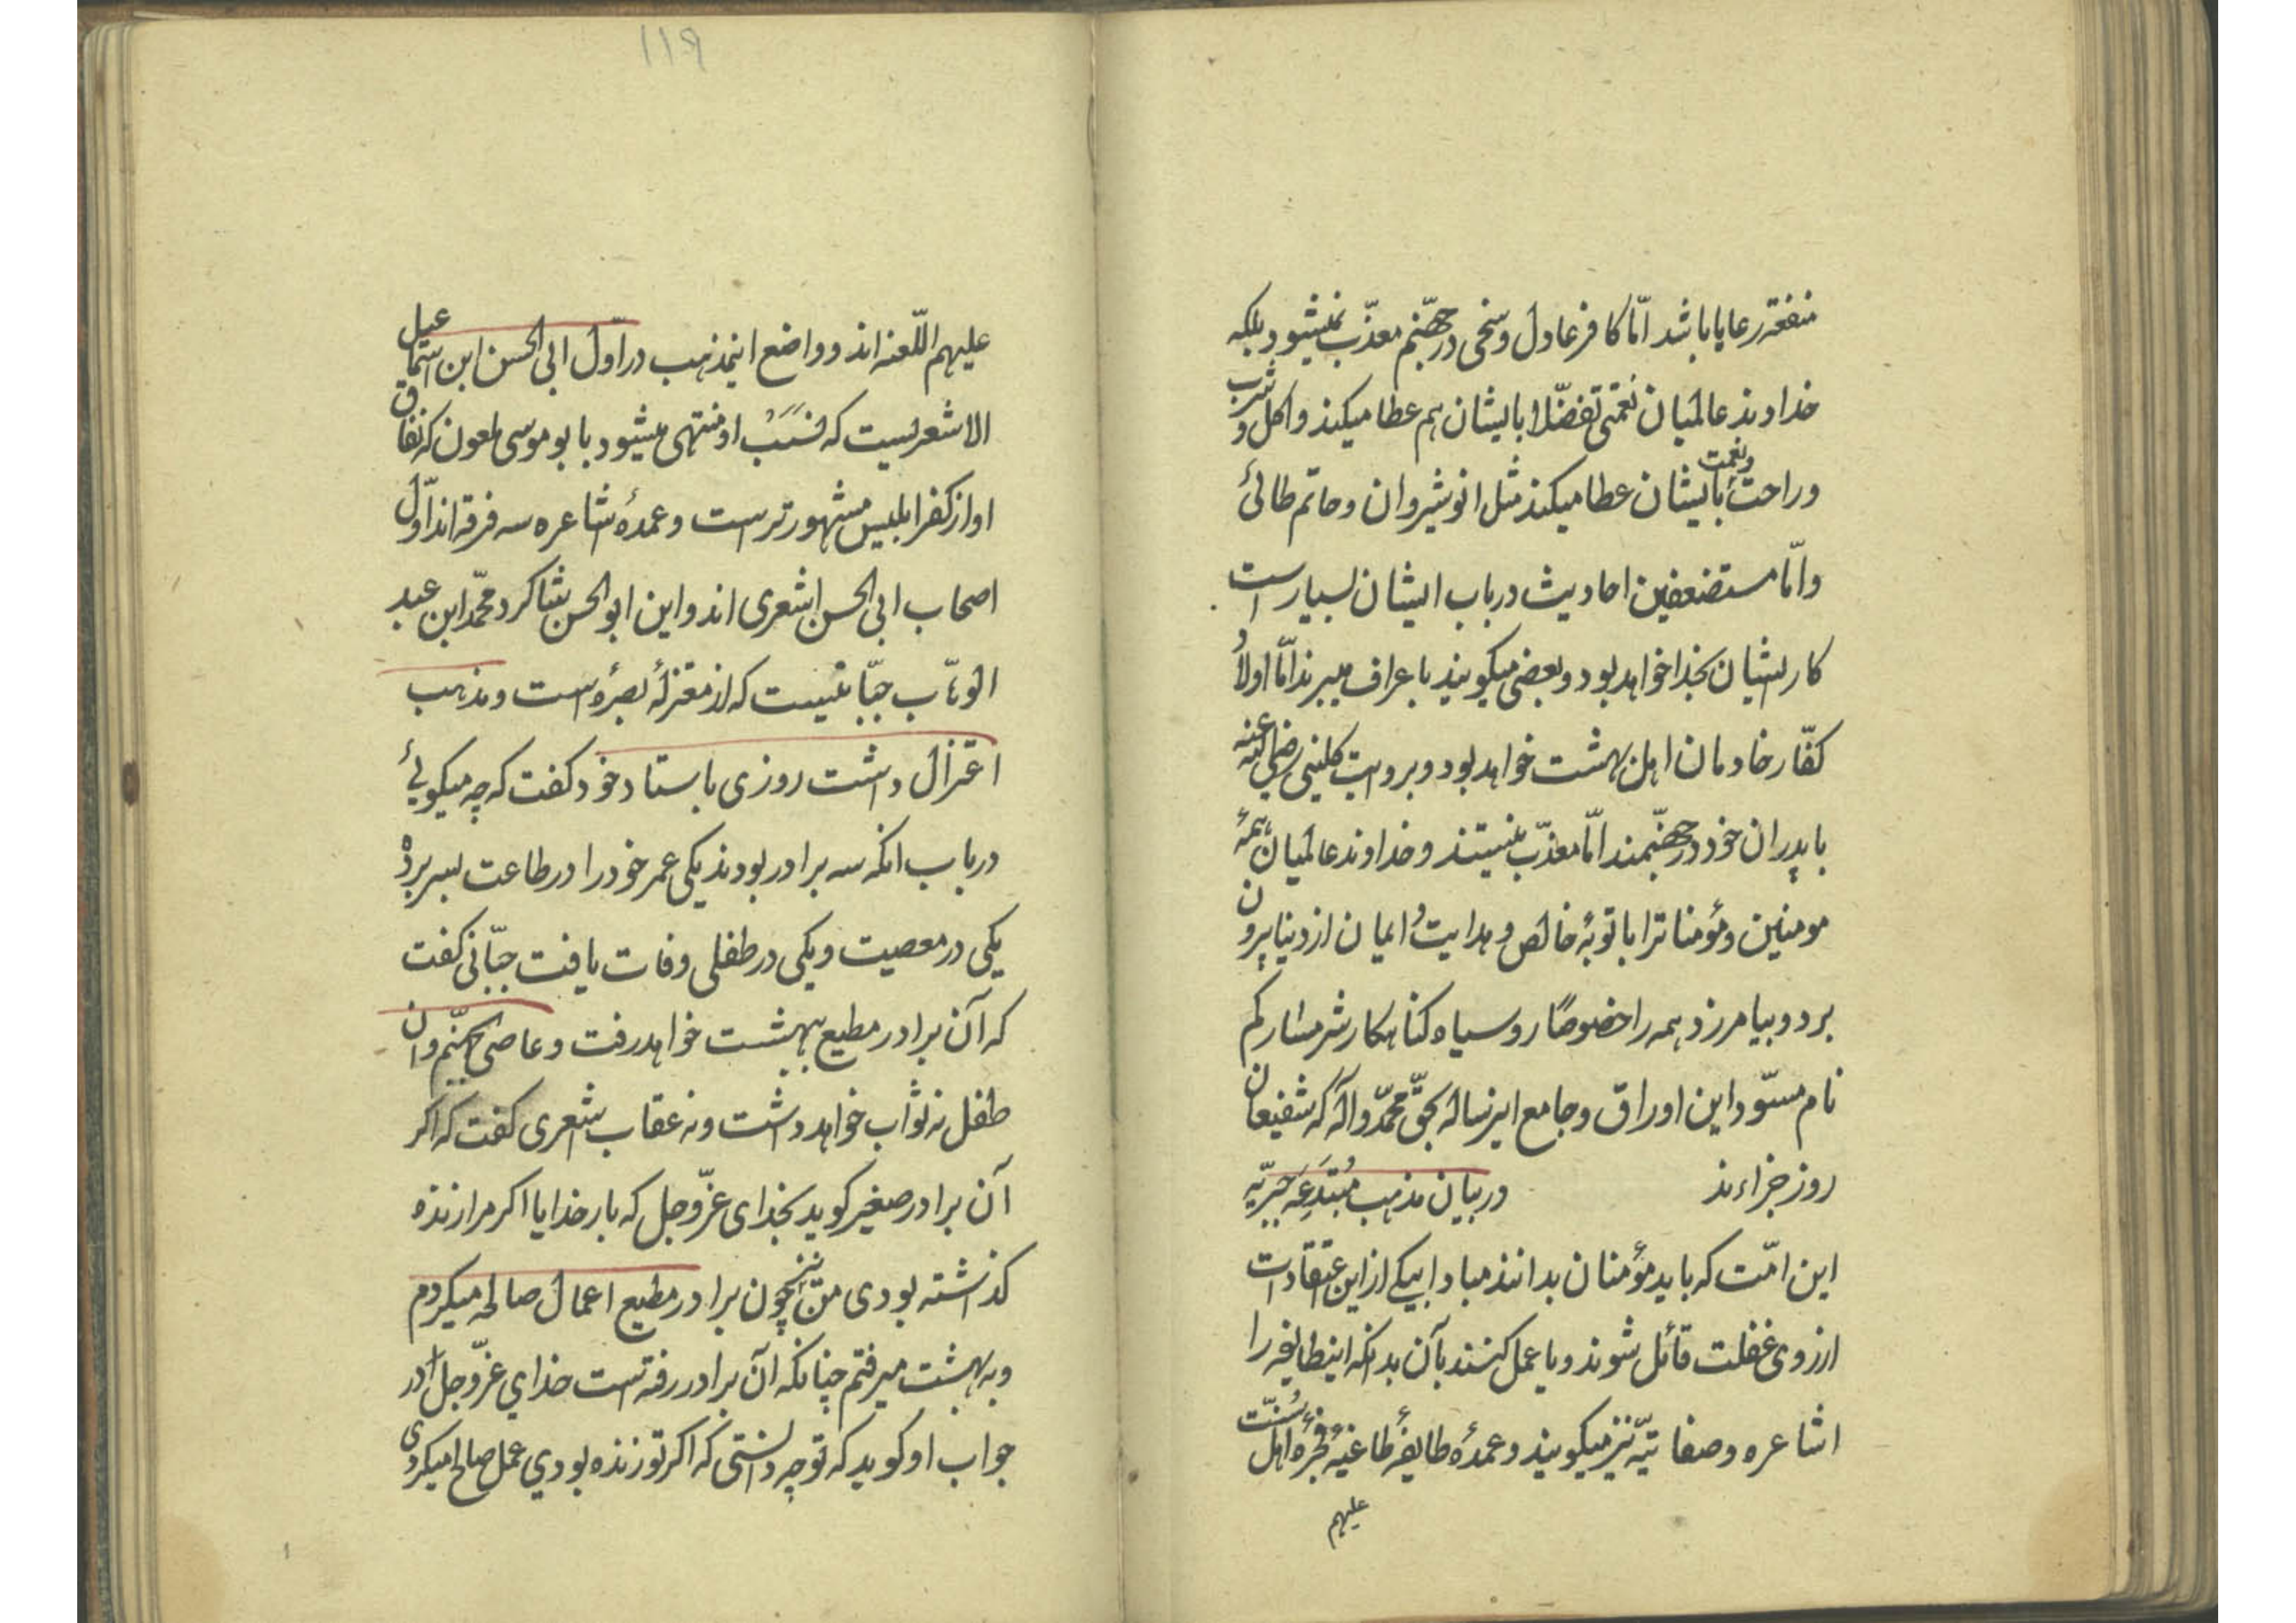 منفعة رعایا باشد امّا کافر عادل و سخی در جهنّم معذّب نمیشود بلکه
خداوند عالمیان نعمتی تفضّلا بایشان هم عطا میکند و اکل و شرب
و راحت و نعمت بایشان عطا میکند مثل انوشیروان و حاتم طائی
و امّا مستضعفین احادیث در باب ایشان بسیار است
کار ایشان بخدا خواهد بود و بعضی میکویند باعراف میبرند امّا اولاد
کفّار خادمان اهل بهشت خواهد بود و بروایت کلینی رضی الله عنه
با پدران خود در جهنّمند امّا معذّب نیستند و خداوند عالمیان همهٔ
مومنین و مؤمناترا با توبهٔ خالص و هدایت و ایمان از دنیا بیرون
برد و بیامرزد همه را خصوصًا رو سیاه کناهکار شرمسار کم
نام مسوّد این اوراق و جامع اینرساله بحقّ محمّد و آله که شفیعان
روز جزاءند در بیان مذهب مُبتَدِعَه جَبریّه
این امّت که باید مؤمنان بدانند مبادا بیکی از این اعتقادات
از روی غفلت قائل شوند و یا عمل کنند بآن بدانکه اینطایفه را
اشاعره و صفاتیّه نیز میکویند و عمدهٔ طایفهٔ طاغیهٔ فجرهٔ اهل سُنّت
علیهم
۱۱۹
علیهم اللّعنه اند و واضع اینمذهب در اوّل ابی الحسن ابن اسمعیل
الاشعریست که نَسَبْ او منتهی میشود با بو موسی ملعون که نفاق
او از کفر ابلیس مشهورتر است و عمدهٔ اشاعره سه فرقه اند اوّل
اصحاب ابی الحسن اشعری اند و این ابو الحسن شاکرد محمّد ابن عبد
الوهّاب جبّائیست که از معتزلهٔ بصره است و مذهب
اعتزال داشت روزی باستاد خود کفت که چه میکوئی
در باب انکه سه برادر بودند یکی عمر خود را در طاعت بسر برد و
یکی در معصیت و یکی در طفلی وفات یافت جبّائی کفت
که آن برادر مطیع ببهشت خواهد رفت و عاصی بجهنّم و ان
طفل نه ثواب خواهد داشت و نه عقاب اشعری کفت که اکر
آن برادر صغیر کوید بخدای عزّ و جل که بار خدایا اکر مرا زنده
کذاشته بودی من نیز چون برادر مطیع اعمال صالحه میکردم
و به بهشت میرفتم چنانکه آن برادر رفته است خدای عزّ و جل در
جواب او کوید که تو چه دانستی که اکر تو زنده بودی عمل صالح میکردی